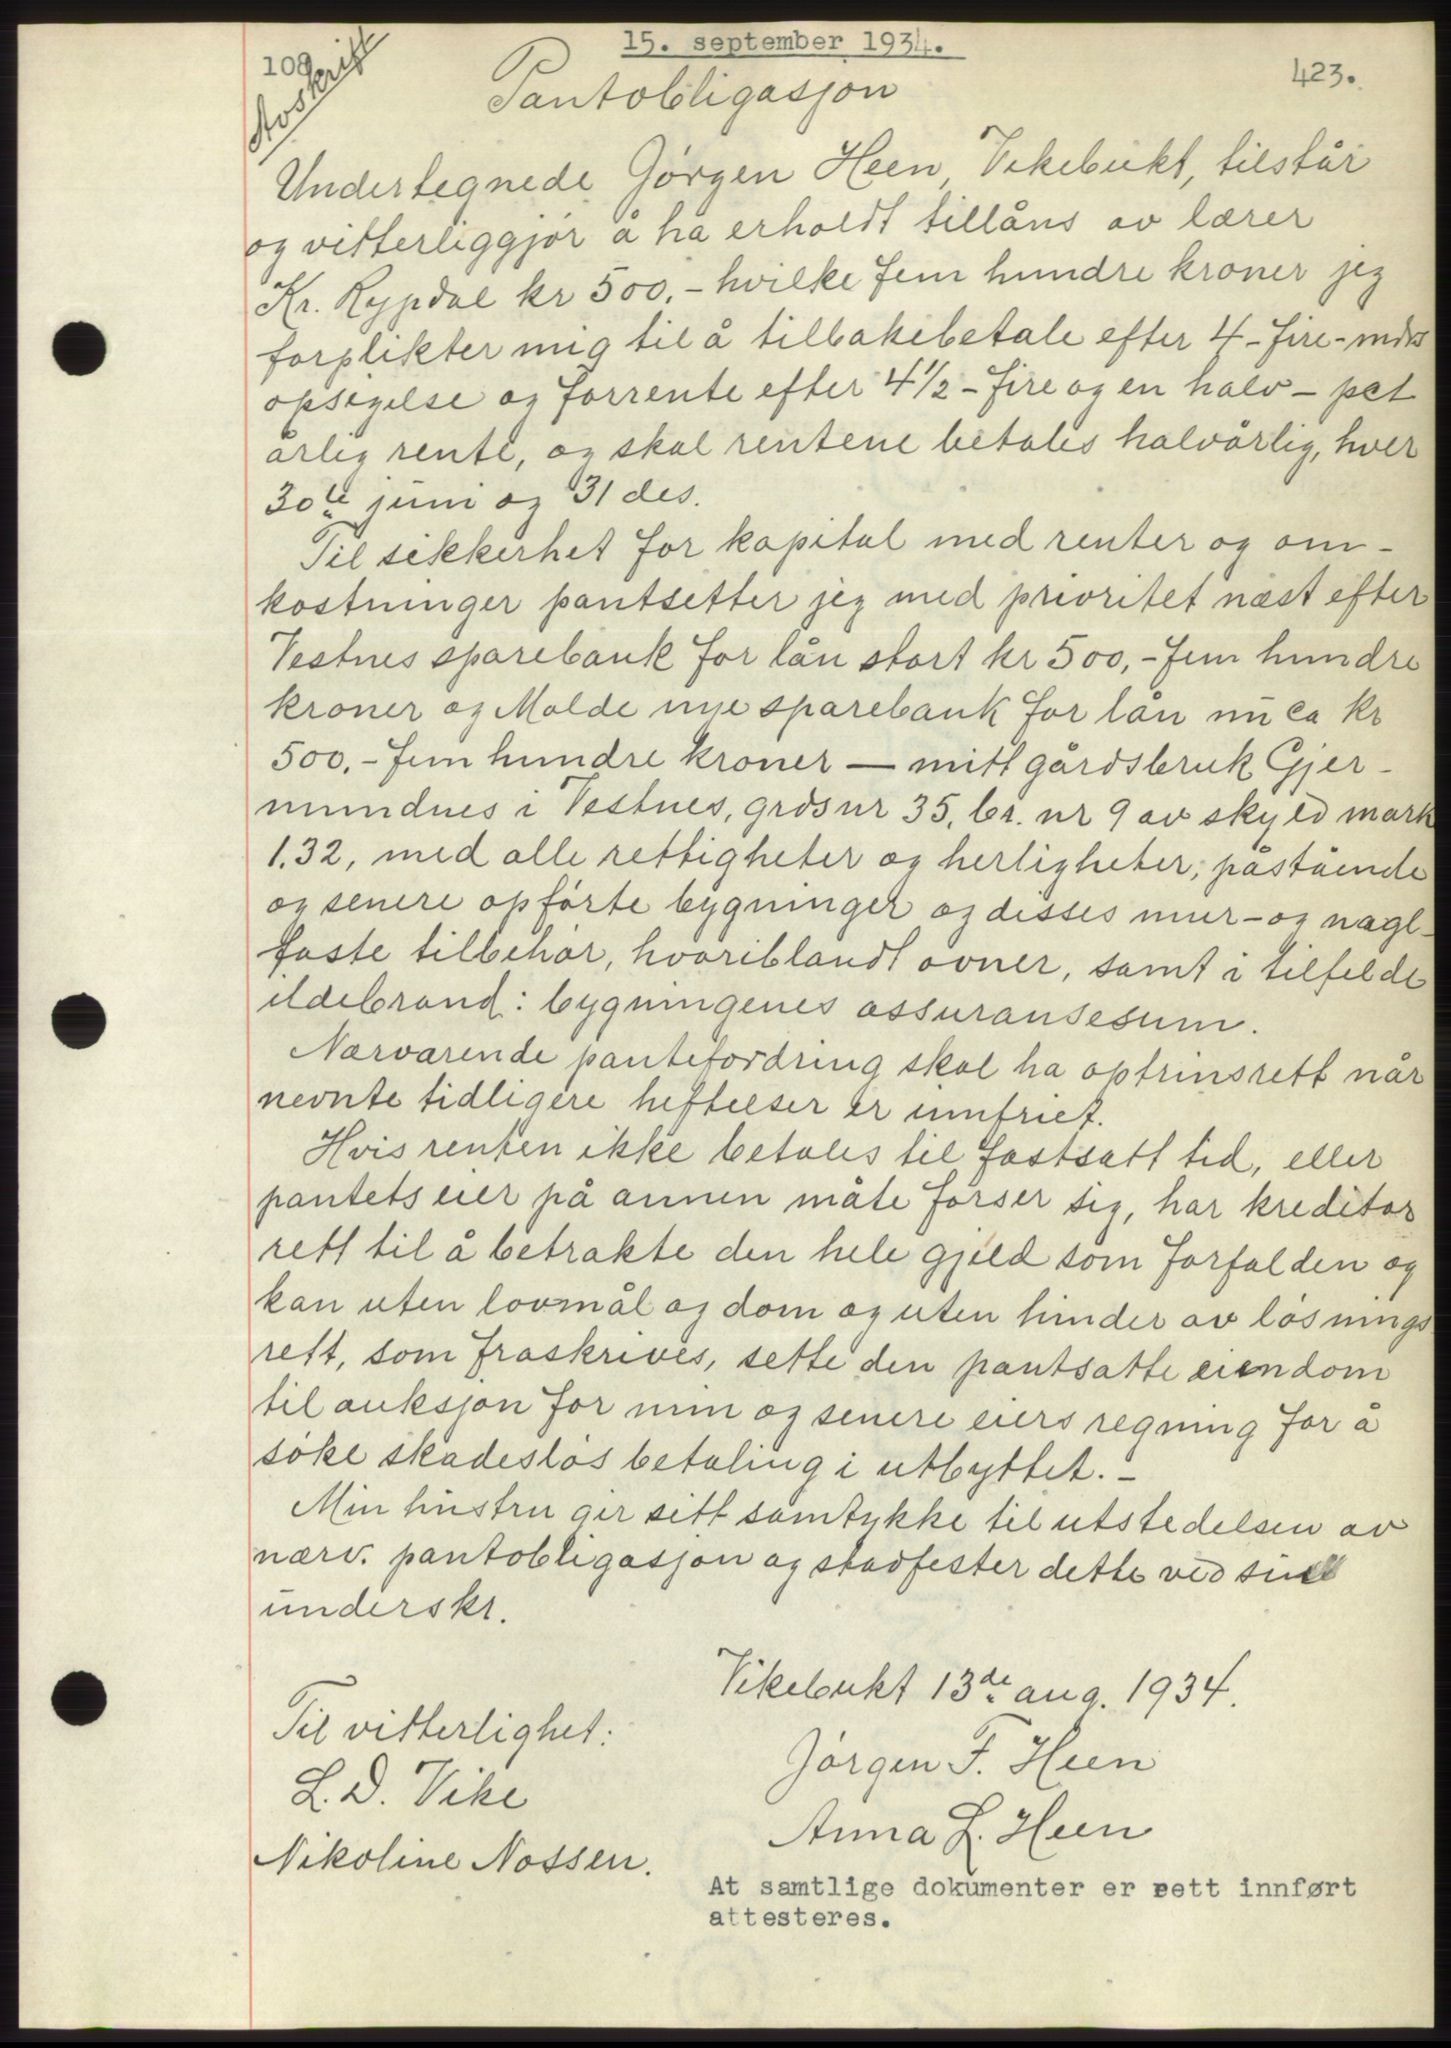 15. september 1934.
109
Avskrift
423.
Pantobligasjon
Undertegnede Jørgen Heen, Vikebukt, tilstår
og vitterliggjør å ha erholdt tillåns av lærer
Kr. Rypdal kr 500,- hvilke fem hundre kroner jeg
forplikter mig til å tilbakebetale efter 4 - fire - mdrs
opsigelse og forrente efter 4 1/2 - fire og en halv - pct
årlig rente, og skal rentene betales halvårlig, hver
30te juni og 31 des.
Til sikkerhet for kapital med renter og om-
kostninger pantsetter jeg med prioritet næst efter
Vestnes sparebank for lån stort kr 500,- fem hundre
kroner og Molde nye sparebank for lån nu ca kr
500,- fem hundre kroner — mitt gårdsbruk Gjer-
mundnes i Vestnes, grdsnr 35, br. nr 9 av skyld mark
1.32, med alle rettigheter og herligheter, påstående
og senere opførte bygninger og disses mur- og nagl-
faste tilbehør, hvoriblandt ovner, samt i tilfelde
ildebrand: bygningenes assuransesum.
Nærværende pantefordring skal ha optrinsrett når
nevnte tidligere heftelser er innfriet.
Hvis renten ikke betales til fastsatt tid, eller
pantets eier på annen måte forser sig, har kreditor
rett til å betrakte den hele gjeld som forfalden og
kan uten lovmål og dom og uten hinder av løsnings
rett, som fraskrives, sette den pantsatte eiendom
til auksjon for min og senere eiers regning for å
søke skadesløs betaling i utbyttet. -
Min hustru gir sitt samtykke til utstedelsen av
nærv. pantobligasjon og stadfester dette ved sin
underskr.
Vikebukt 13de aug. 1934.
Til vitterlighet:
Jørgen F. Heen
L. D. Vike
Anna L. Heen
Nikoline Nossen.
At samtlige dokumenter er rett innført
attesteres.